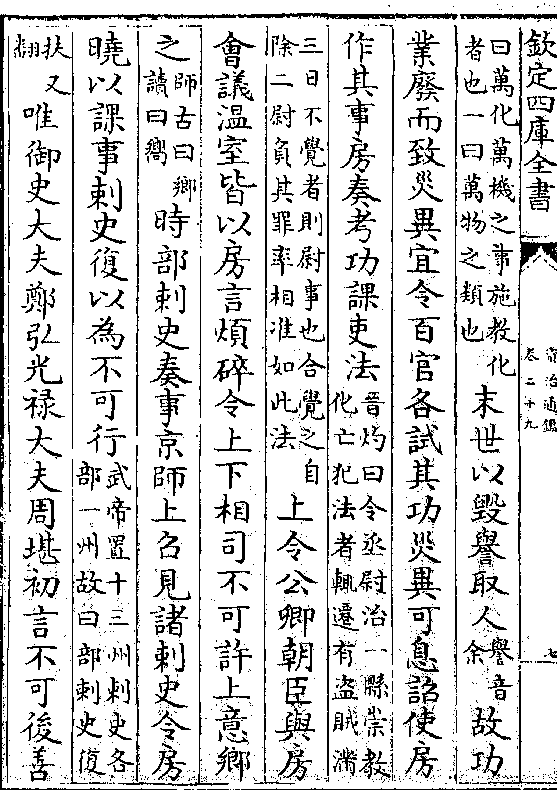 欽定四庫全書
資治通鑑
卷二十九
七
曰萬化萬機之事施教化
者也一曰萬物之類也
末世以毀譽取人
譽音
余
故功
業廢而致災異宜令百官各試其功災異可息詔使房
作其事房奏考功課吏法
晉灼曰令丞尉治一縣崇教
化亡犯法者輒遷有盜賊滿
三日不覺者則尉事也合覺之自
除二尉負其罪率相准如此法
上令公卿朝臣與房
會議溫室皆以房言煩碎令上下相司不可許上意鄉
之
師古曰鄉
讀曰嚮
時部刺史奏事京師上召見諸刺史令房
曉以課事刺史復以為不可行
武帝置十三州刺史各
部一州故曰部刺史復
扶又
翻
唯御史大夫鄭弘光祿大夫周堪初言不可後善